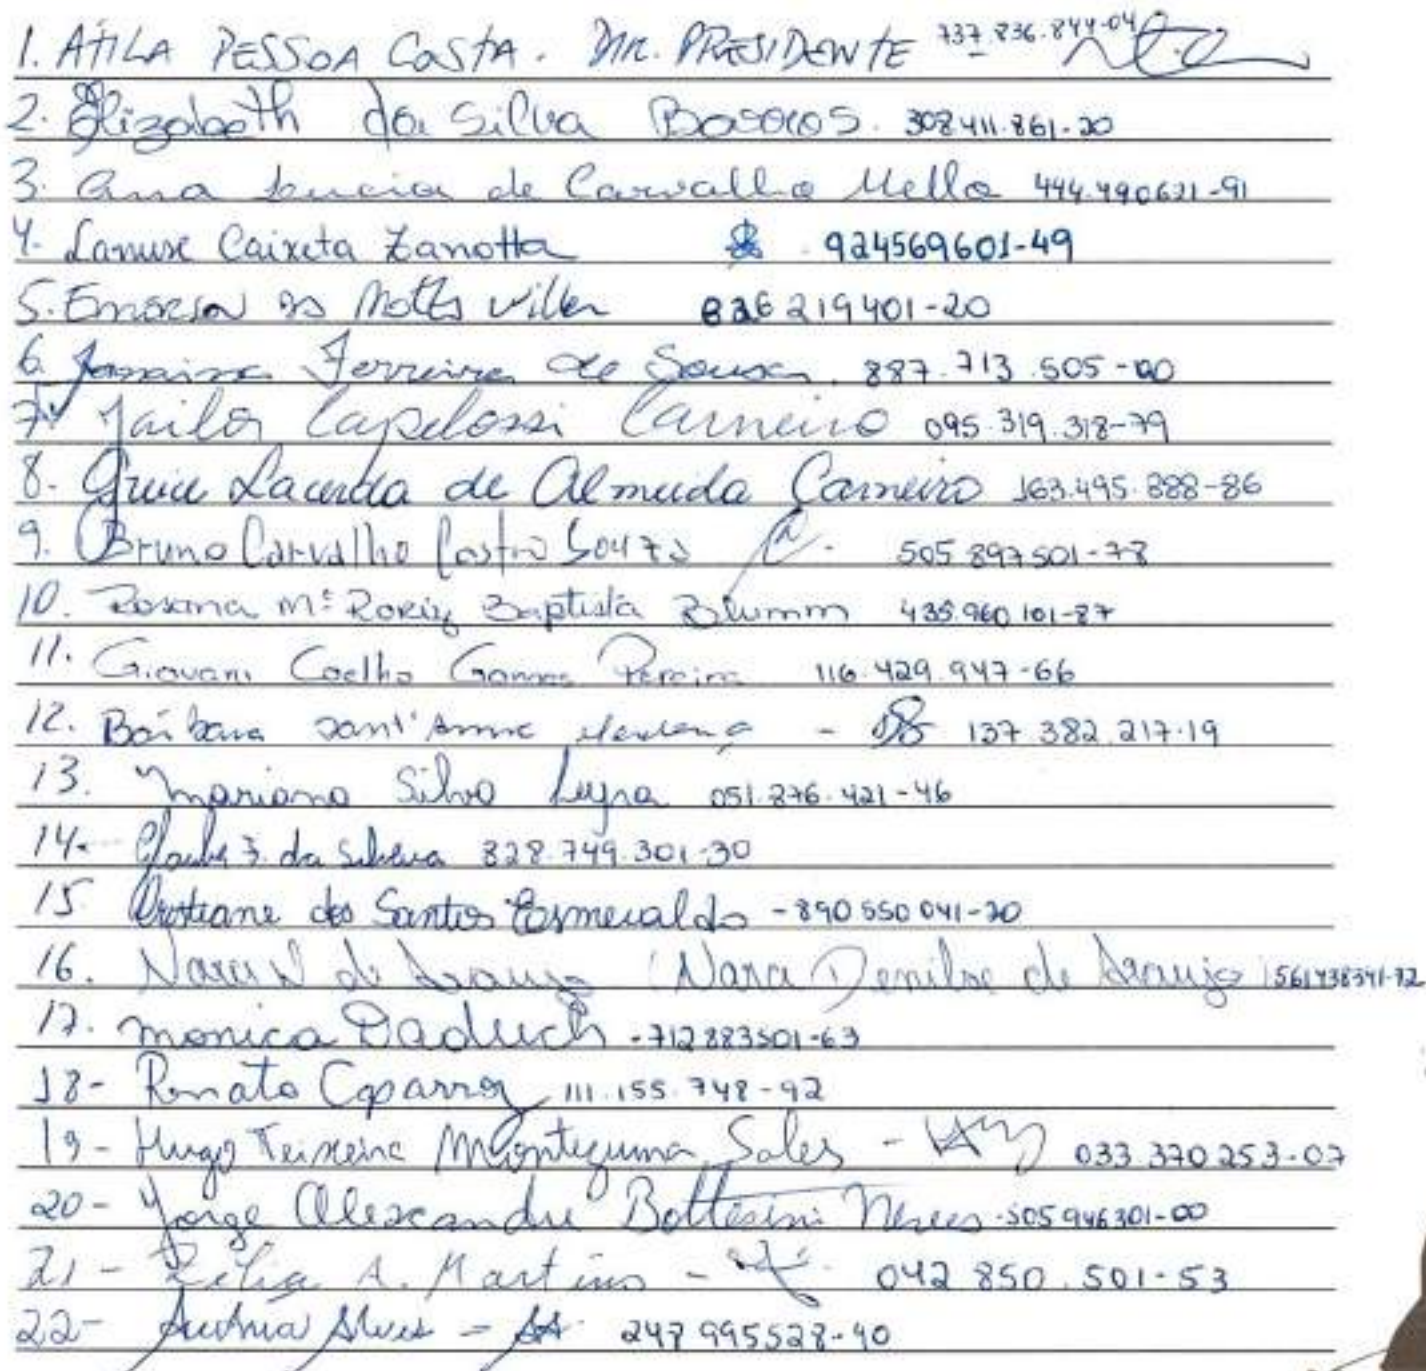 1. ATILA PESSOA COSTA. DIR. PRESIDENTE 737.836.844-04
2. Elizabeth da Silva Barros. 308411.861-20
3. Ana Lucia de Carvalho Mello 444.490621-91
4. Lanuse Caixeta Zanotta 924569601-49
5. Emerson da Motta Villar 826219401-20
6. Janaina Ferreira de Sousa. 887.713.505-00
7. Jailor Capelossi Carneiro 095.319.318-79
8. Greice Lacerda de Almeida Carneiro 163.495.888-86
9. Bruno Carvalho Castro Souza 505 897501-78
10. Rosana Mª Roriz Baptista Blumm 435.960 101-87
11. Giovani Coelho Gomes Pereira 116.429.947-66
12. Bárbara Sant'Anna - 137.382.217.19
13. Mariana Silva Lyra 051.876.421-46
14. da Silveira 828.749.301-30
15 Cristiane dos Santos Esmeraldo - 890 550 041-20
16. Nara D de Araujo (Nara Denilse de Araujo) 561438341-72
17. Monica Daduch - 712883501-63
18- Renato Caparroz 111.155.748-92
19- Hugo Teixeira Montezuma Sales - 033.370 253-07
20- Jorge Alexandre Bottesini Neves - 505946301-00
21- Zelia A. Martins - 042 850.501-53
22- Alves - 248 995528-90